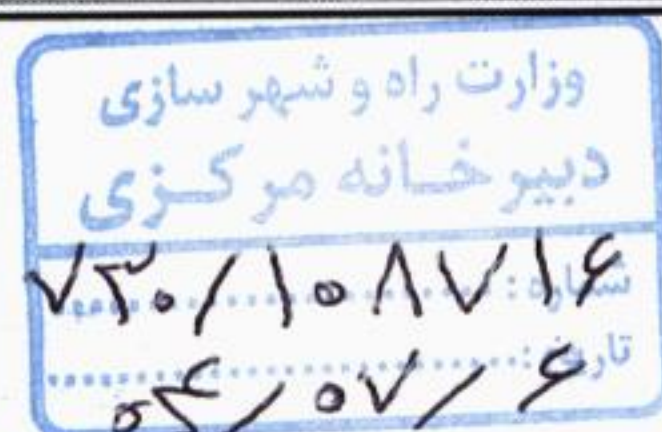 وزارت راه و شهر سازی
دبیر خانه مرکزی
شماره: ۷۳۰/۱۰۸۷۱۶
تاریخ: ۰۴/۰۷/۶